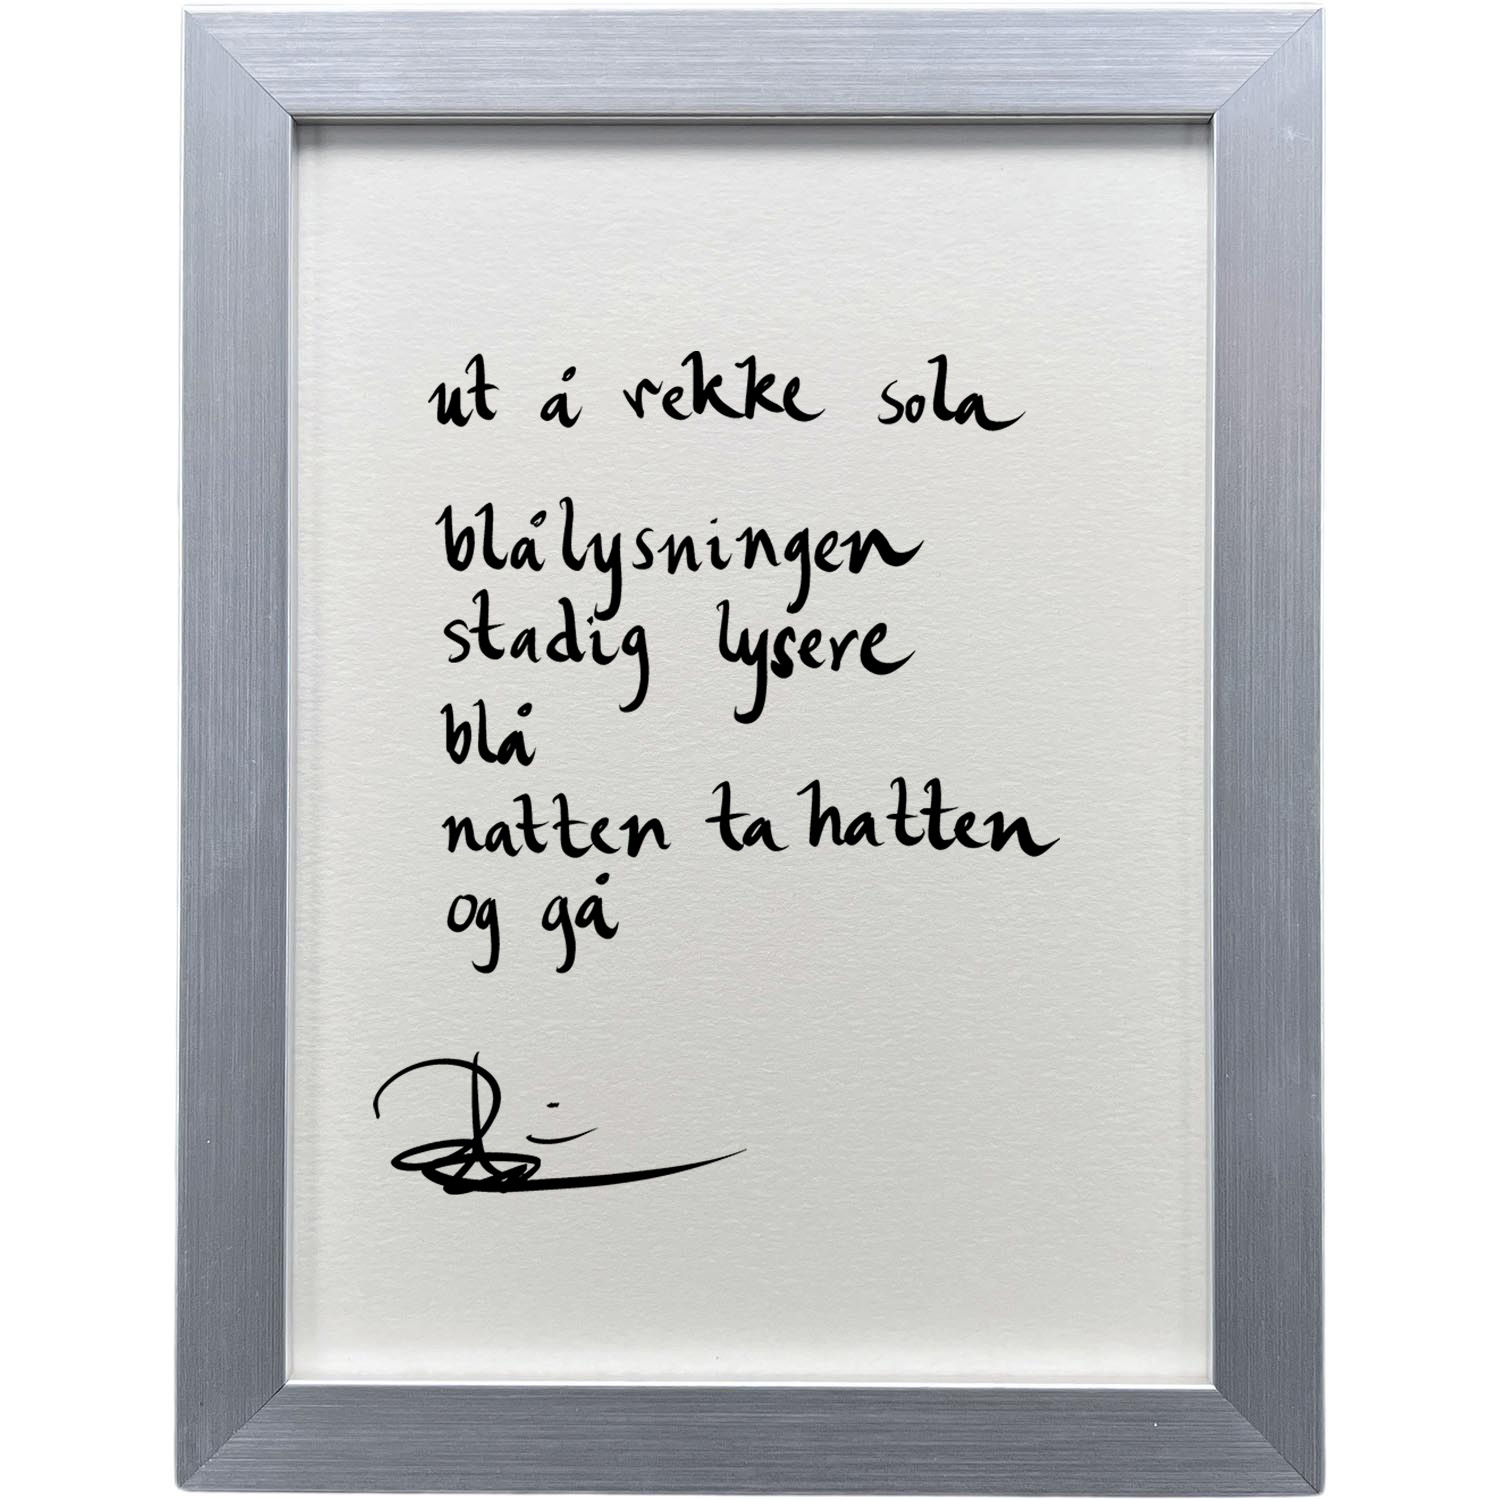 ut å rekke sola
blålysningen
stadig lysere
blå
natten ta hatten
og gå